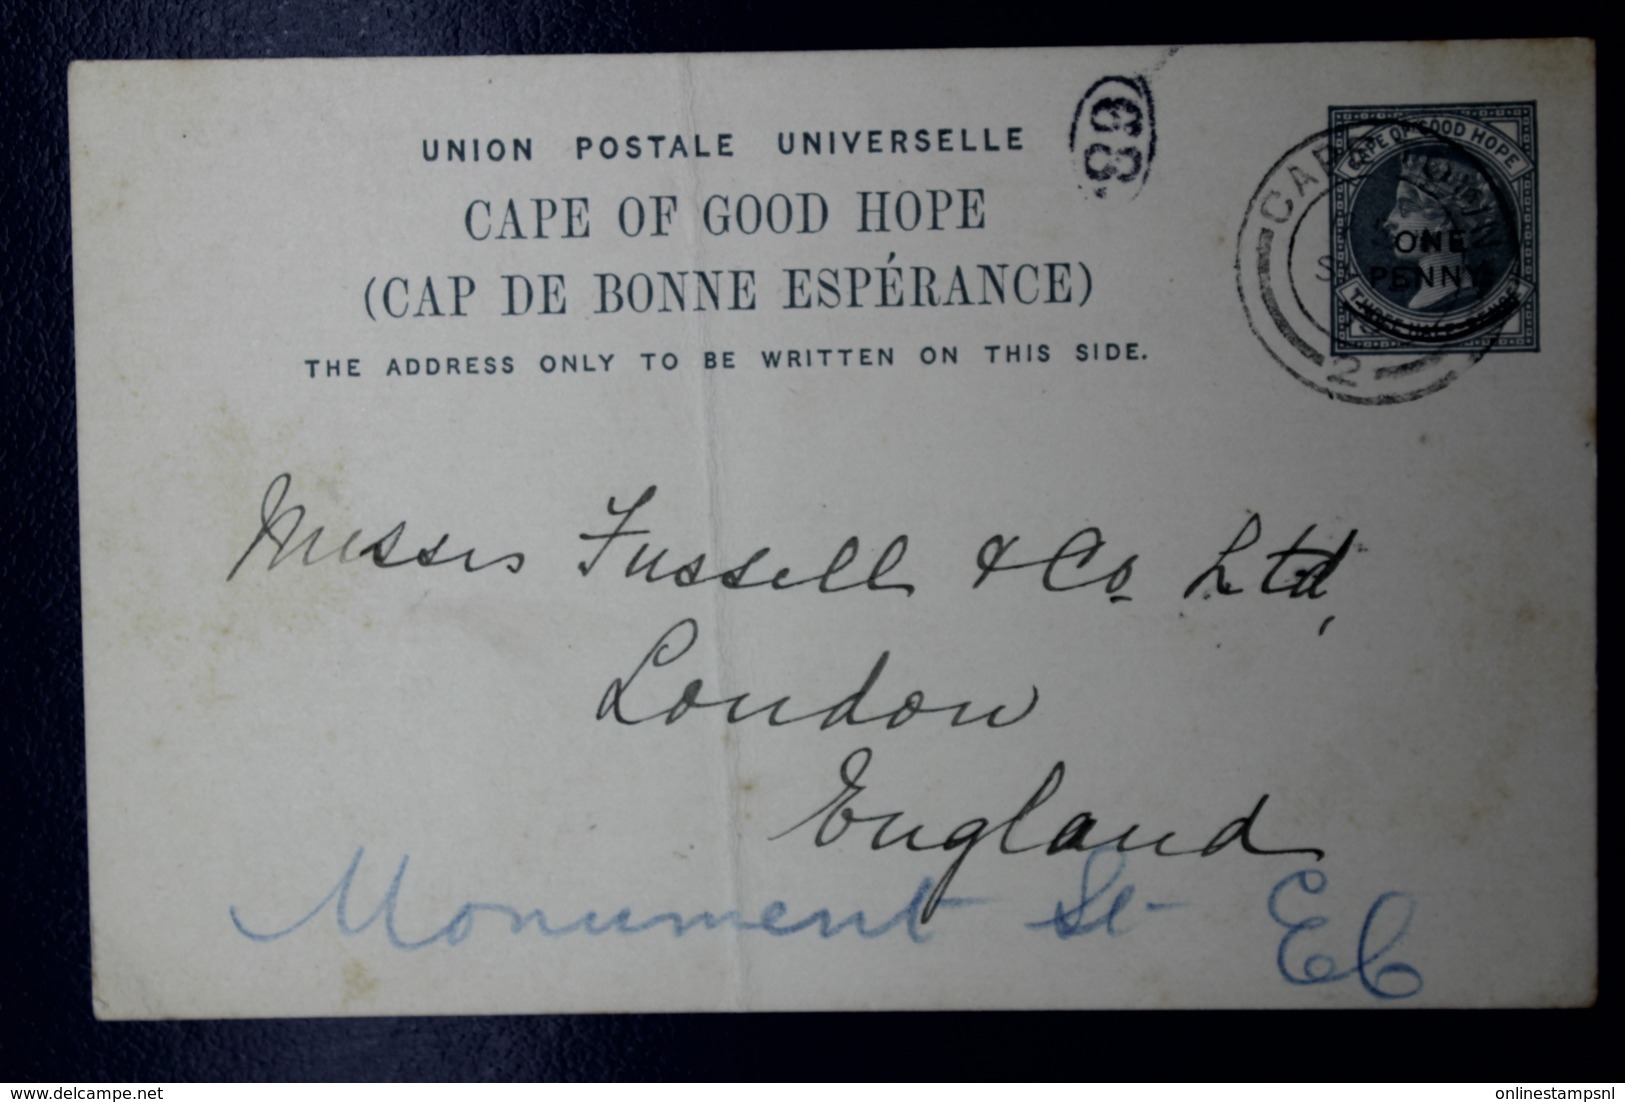 UNION POSTALE UNIVERSELLE
CAPE OF GOOD HOPE
(CAP DE BONNE ESPÉRANCE)
THE ADDRESS ONLY TO BE WRITTEN ON THIS SIDE.
CAPE OF GOOD HOPE
ONE
PENNY
CAPE TOWN
2
Messrs Fussell & Co Ltd,
London
England
Monument St EC
delcampe.net
onlinestampsnl